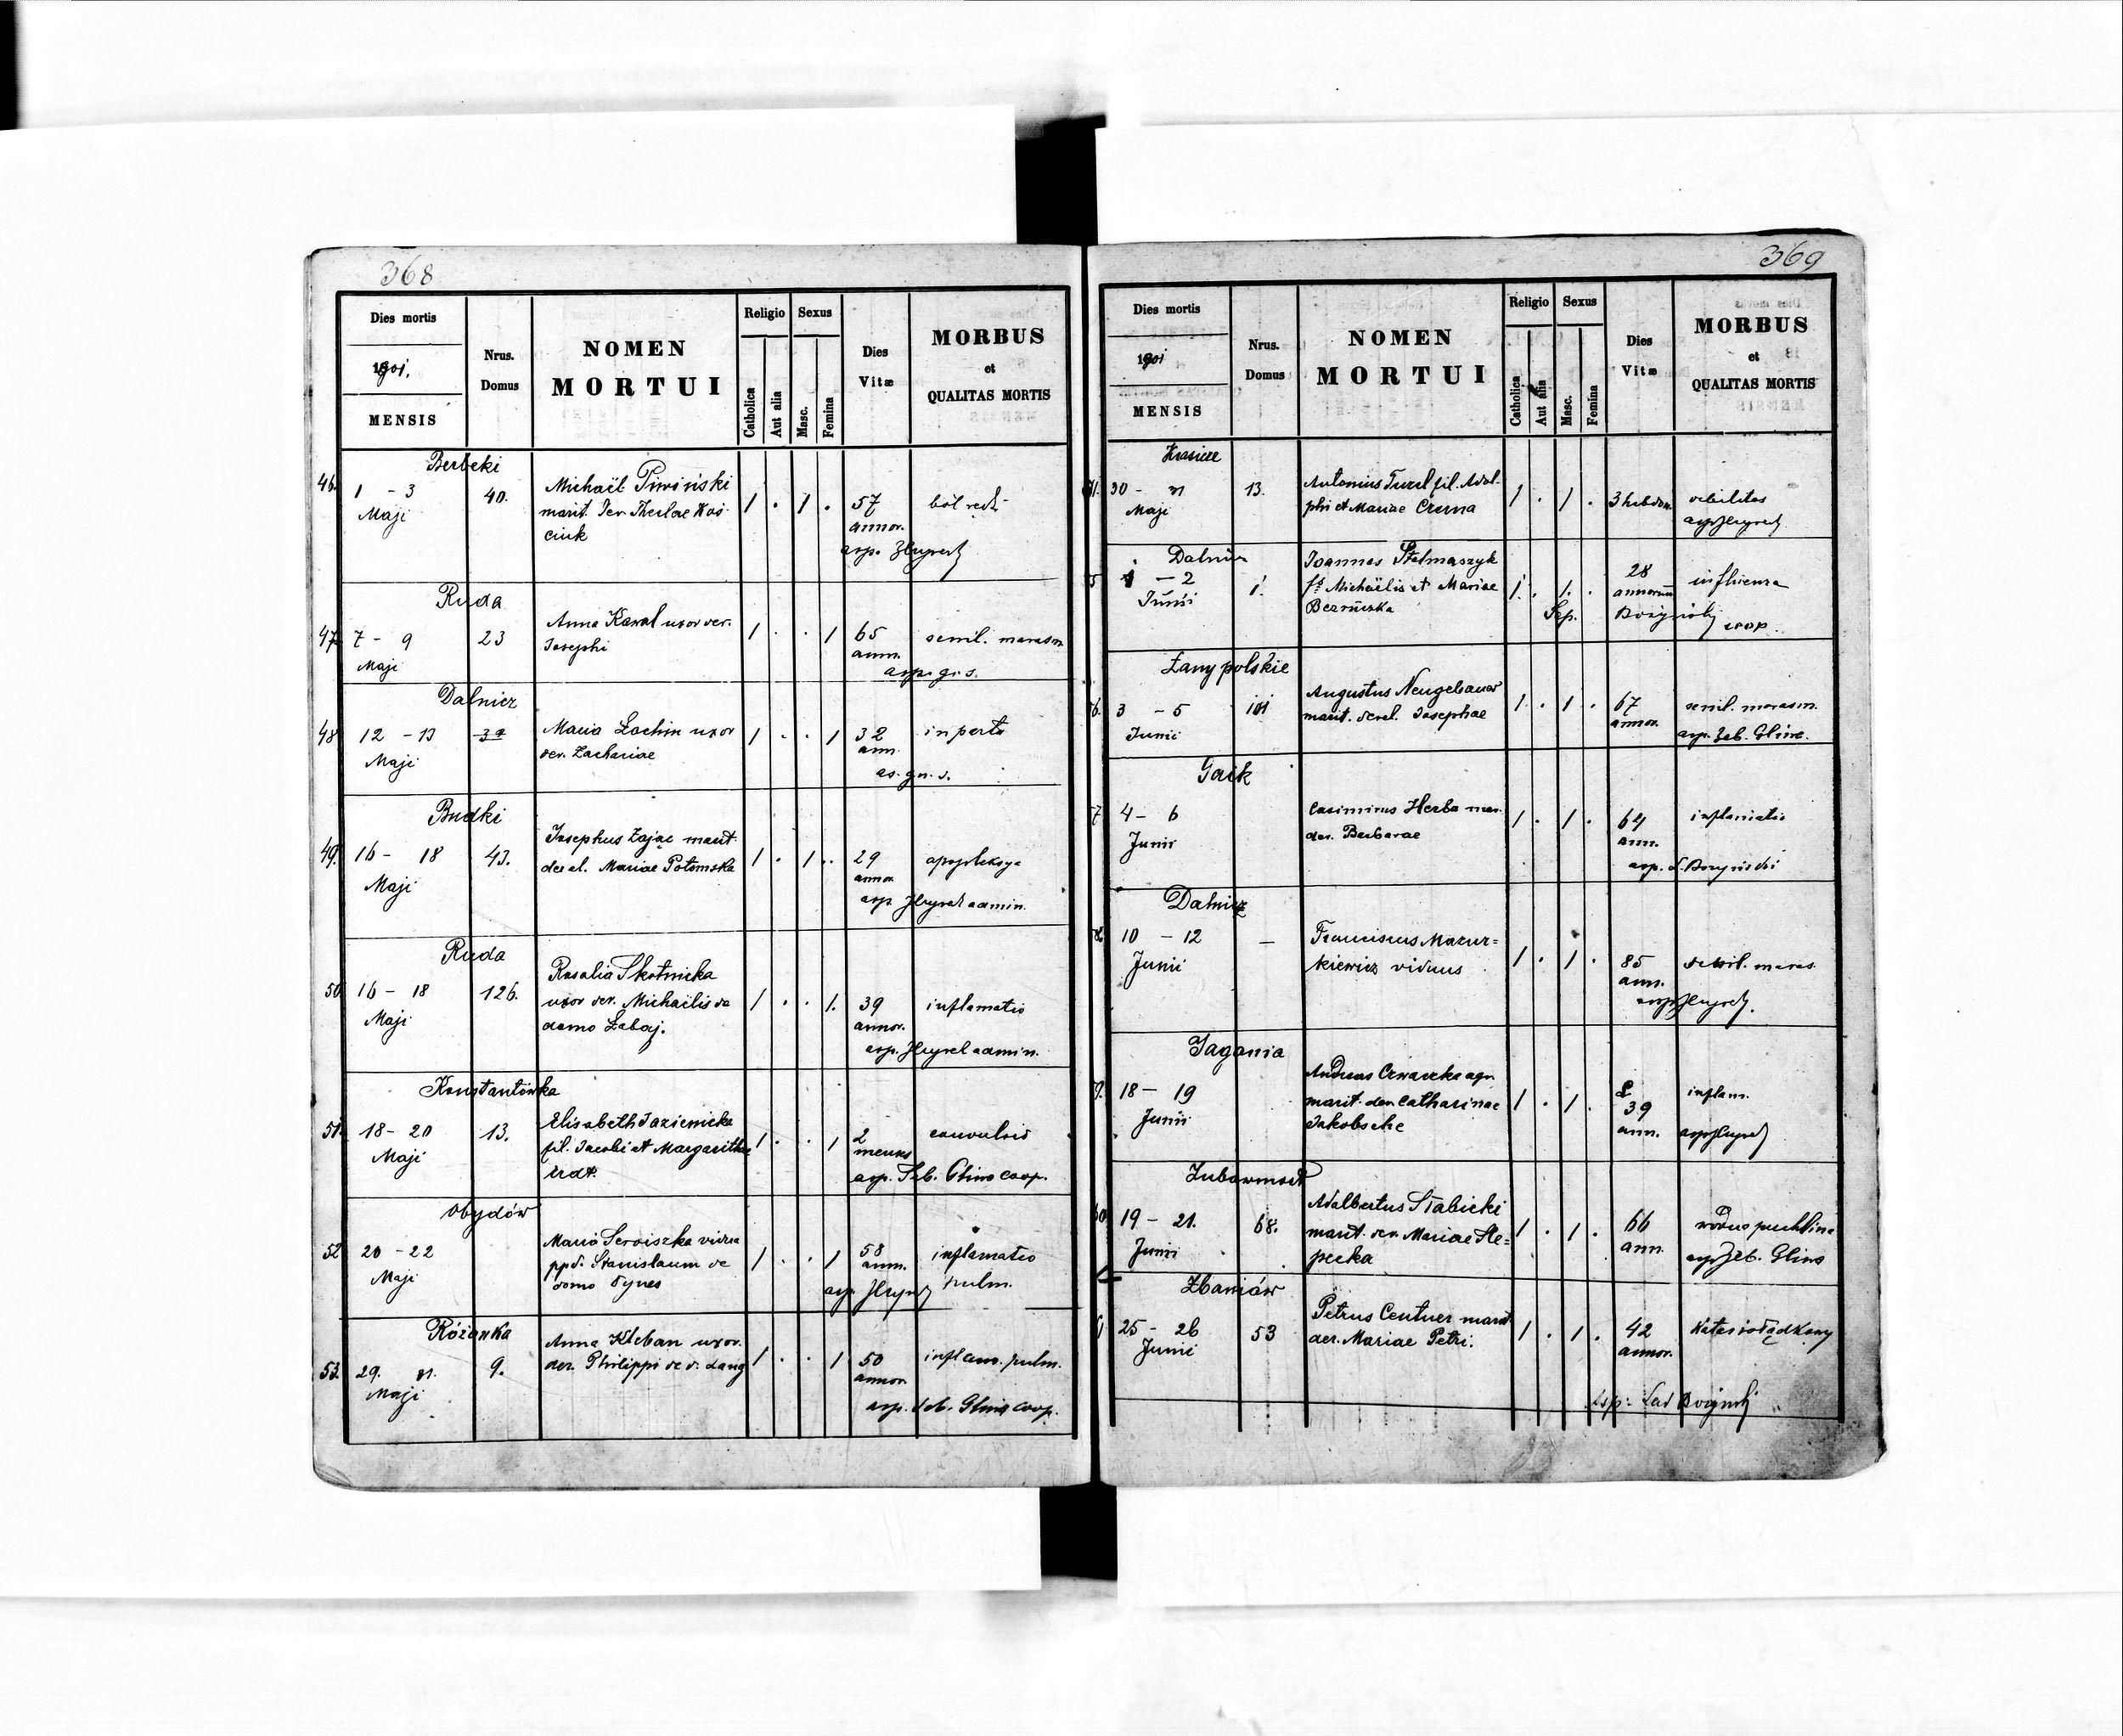 368
Dies mortis
1901.
MENSIS
Nrus.
Domus
NOMEN
MORTUI
Religio
Catholica
Aut alia
Sexus
Masc.
Femina
Dies
Vitæ
MORBUS
et
QUALITAS MORTIS
Berbeki
46. 1 - 3
Maji
40.
Michaël Piwiński
marit. der. Theclae Koś-
ciuk
1 . 1 .
57
annor.
ból
asp.
Ruda
47. 7 - 9
Maji
23
Anna Kawal uxor der.
Josephi
1 . . 1
65
ann.
senil. marasm
asp. gr. s.
Dalnicz
48 12 - 13
Maji
Maria Lachin uxor
der. Zachariae
1 . . 1
32
ann.
in partu
as. gr. s.
Budki
49. 16 - 18
Maji
43.
Josephus Zając marit.
derel. Mariae Potomska
1 . 1 .
29
annor.
apopleksya
asp. admin.
Ruda
50 16 - 18
Maji
126.
Rosalia Skotnicka
uxor der. Michaëlis de
domo Łabaj.
1 . . 1.
39
annor.
inflamatio
asp. admin.
Konstantówka
51. 18 - 20
Maji
13.
Elisabeth Jazienicka
fil. Jacobi et Margarithae
1 . . 1
2
menses
convulsio
asp. Seb. Glino coop.
Obydów
52 20 - 22
Maji
Maria vidua
pp. d. Stanislaum de
domo Dynes
1 . . 1
58
ann.
inflamatio
pulm.
asp.
Różanka
53. 29. 31.
Maji
9.
Anna Kleban uxor.
der. Philippi de d. Lang
1 . . 1
50
annor.
inflam. pulm.
asp. Seb. Glino coop.
369
Dies mortis
1901
MENSIS
Nrus.
Domus
NOMEN
MORTUI
Religio
Catholica
Aut alia
Sexus
Masc.
Femina
Dies
Vitæ
MORBUS
et
QUALITAS MORTIS
30 - 31
Maji
13.
Antonius fil. Adol-
phi et Mariae Czerna
1 . 1 .
3 hebdom.
debilitas
asp.
Dalnicz
1 - 2
Junii
1.
Joannes Stelmaszyk
fs. Michaëlis et Mariae
1 . 1 .
28
annorum
influenza
Sep.
coop.
Łany polskie
3 - 5
Junii
101
Augustus Neugebauer
marit. derel. Josephae
1 . 1 .
67
annor.
senil. marasm.
asp. Seb. Glino.
Gaik
4 - 6
Junii
Casimirus Herba mar.
der. Barbarae
1 . 1 .
64
ann.
inflamatio
asp. L. Bozyński
Dalnicz
10 - 12
Junii
—
Franciscus Mazur=
kiewicz viduus
1 . 1 .
85
ann.
senil. maras.
asp.
Jagonia
18 - 19
Junii
Andreas agr.
marit. der. Catharinae
Jakobsche
1 . 1 .
39
ann.
inflam.
asp.
19 - 21.
Junii
68.
Adalbertus Stabicki
marit. der. Mariae Rze=
pecka
1 . 1 .
66
ann.
wodna puchlina
asp. Seb. Glino
Zbaniów
25 - 26
Junii
53
Petrus Centner marit.
der. Mariae Petri.
1 . 1 .
42
annor.
Katar żołądkowy
asp: Lad